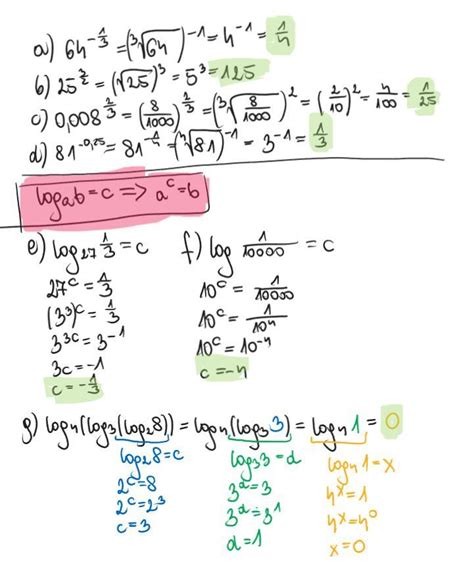 a) 64^{-1/3} = (∛64)^{-1} = 4^{-1} = 1/4
b) 25^{3/2} = (√25)^3 = 5^3 = 125
c) 0,008^{2/3} = (8/1000)^{2/3} = (∛(8/1000))^2 = (2/10)^2 = 4/100 = 1/25
d) 81^{-0,25} = 81^{-1/4} = (∜81)^{-1} = 3^{-1} = 1/3
log_a b = c => a^c = b
e) log_27 1/3 = c
27^c = 1/3
(3^3)^c = 1/3
3^{3c} = 3^{-1}
3c = -1
c = -1/3
f) log 1/10000 = c
10^c = 1/10000
10^c = 1/10^4
10^c = 10^{-4}
c = -4
g) log_4(log_3(log_2 8)) = log_4(log_3 3) = log_4 1 = 0
log_2 8 = c
2^c = 8
2^c = 2^3
c = 3
log_3 3 = d
3^d = 3
3^d = 3^1
d = 1
log_4 1 = x
4^x = 1
4^x = 4^0
x = 0